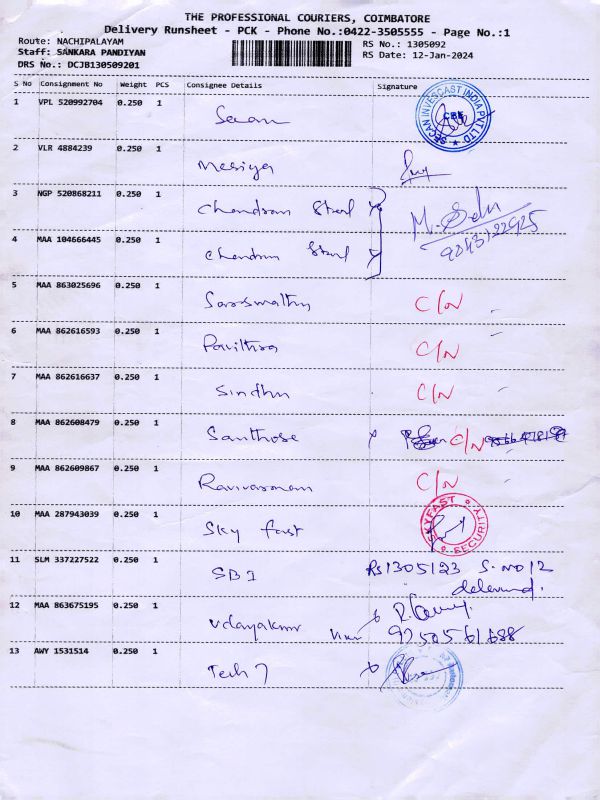 THE PROFESSIONAL COURIERS, COIMBATORE
Delivery Runsheet - PCK - Phone No.:0422-3505555 - Page No.:1
Route: NACHIPALAYAM RS No.: 1305092
Staff: SANKARA PANDIYAN RS Date: 12-Jan-2024
DRS No.: DCJB130509201
S No Consignment No Weight PCS Consignee Details Signature
1 VPL 520992704 0.250 1 SECAN INVESCAST INDIA PVT LTD CBE
Secan
2 VLR 4884239 0.250 1
Mesiya
3 NGP 520868211 0.250 1
Chandram Steel
4 MAA 104666445 0.250 1 9843122925
Chandram Steel
5 MAA 863025696 0.250 1
Saraswathy C/N
6 MAA 862616593 0.250 1
Pavithra C/N
7 MAA 862616637 0.250 1
Sindhu C/N
8 MAA 862608479 0.250 1
Santhose C/N
9 MAA 862609867 0.250 1
C/N
10 MAA 287943039 0.250 1 SKYFAST SECURITY
Sky fast
11 SLM 337227522 0.250 1 RS1305123 S.NO 12
SBI
12 MAA 863675195 0.250 1
Udayakumar
13 AWY 1531514 0.250 1
Tech 7